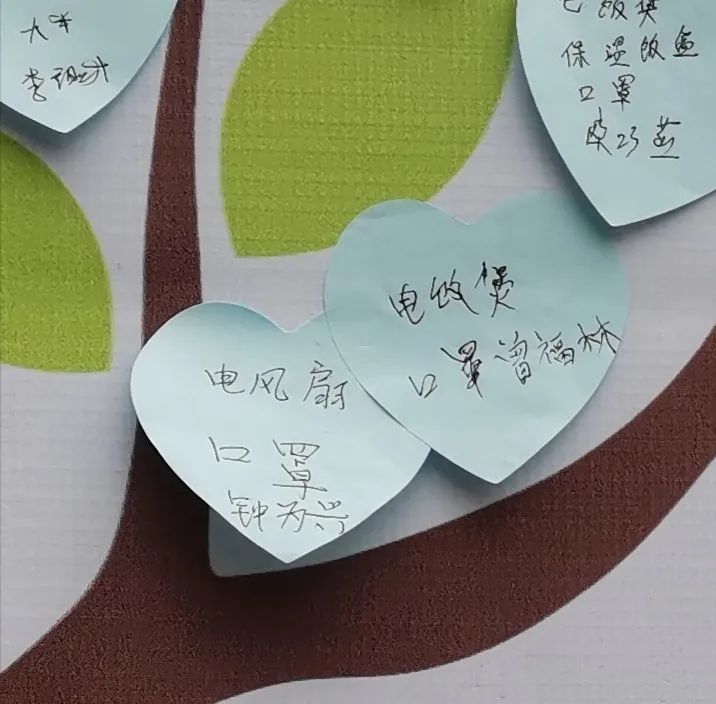 大米
电饭煲
保温饭盒
口罩
电饭煲
口罩 曾福林
电风扇
口罩
钟为兴